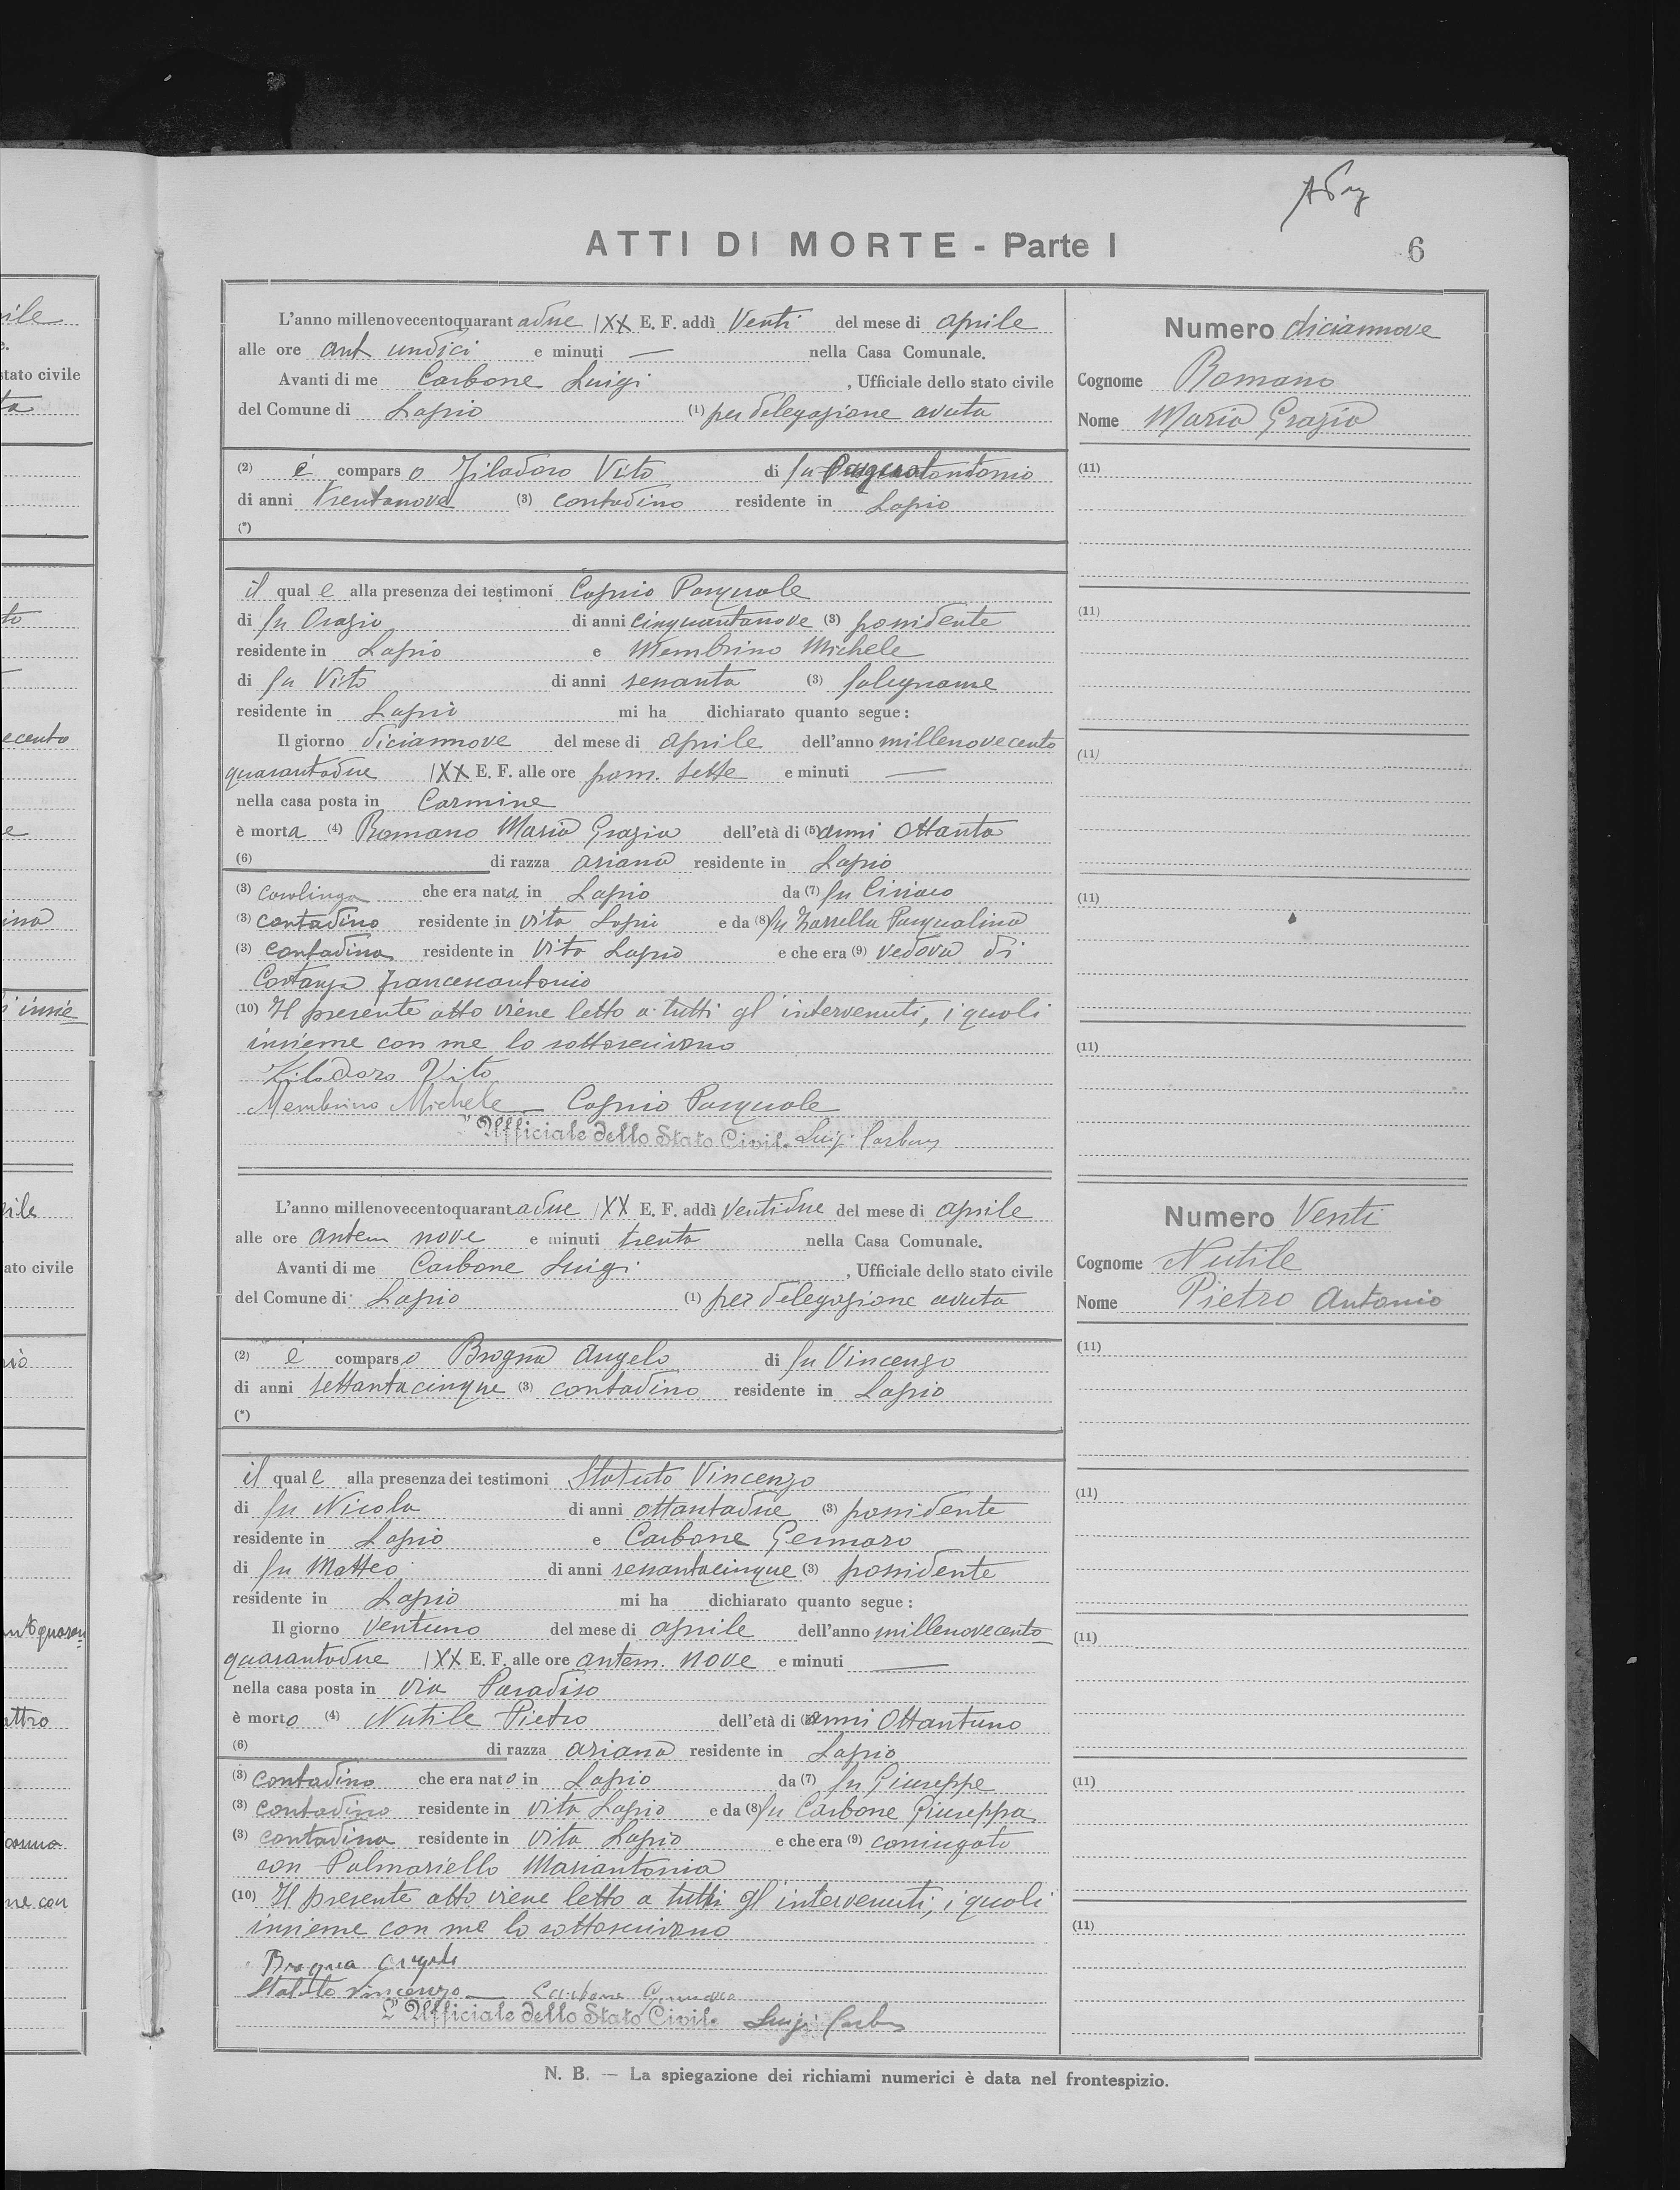 ATTI DI MORTE - Parte I
6
L'anno millenovecentoquarantadue IXX E. F. addì Venti del mese di aprile
alle ore ant undici e minuti — nella Casa Comunale.
Avanti di me Carbone Luigi, Ufficiale dello stato civile
del Comune di Lapio (1) per delegazione avuta
(2) è comparso Filadoro Vito di fu
di anni trentanove (3) contadino residente in Lapio
(*)
il quale alla presenza dei testimoni Capriò Pasquale
di fu Orazio di anni cinquantanove (3) possidente
residente in Lapio e Membrino Michele
di fu Vito di anni sessanta (3) falegname
residente in Lapio mi ha dichiarato quanto segue:
Il giorno diciannove del mese di aprile dell'anno millenovecento
quarantadue IXX E. F. alle ore pom. sette e minuti —
nella casa posta in Carmine
è morta (4) Romano Maria Grazia dell'età di (5) anni ottanta
(6) di razza ariana residente in Lapio
(3) casalinga che era nata in Lapio da (7) fu Ciriaco
(3) contadino residente in vita Lapio e da (8) fu Zarrella Pasqualina
(3) contadina residente in vita Lapio e che era (9) vedova di
Costanza Francescantonio
(10) Il presente atto viene letto a tutti gl'intervenuti, i quali
insieme con me lo sottoscrivono
Filadoro Vito
Membrino Michele — Capriò Pasquale
L'Ufficiale dello Stato Civile Luigi Carbone
Numero diciannove
Cognome Romano
Nome Maria Grazia
(11)
(11)
(11)
(11)
(11)
L'anno millenovecentoquarantadue IXX E. F. addì Ventidue del mese di aprile
alle ore antem nove e minuti trenta nella Casa Comunale.
Avanti di me Carbone Luigi, Ufficiale dello stato civile
del Comune di Lapio (1) per delegazione avuta
(2) è comparso Brogna Angelo di fu Vincenzo
di anni settantacinque (3) contadino residente in Lapio
(*)
il quale alla presenza dei testimoni Statuto Vincenzo
di fu Nicola di anni ottantadue (3) possidente
residente in Lapio e Carbone Gennaro
di fu Matteo di anni sessantacinque (3) possidente
residente in Lapio mi ha dichiarato quanto segue:
Il giorno ventuno del mese di aprile dell'anno millenovecento-
quarantadue IXX E. F. alle ore antem. nove e minuti —
nella casa posta in via Paradiso
è morto (4) Nutile Pietro dell'età di (5) anni ottantuno
(6) di razza ariana residente in Lapio
(3) contadino che era nato in Lapio da (7) fu Giuseppe
(3) contadino residente in vita Lapio e da (8) fu Carbone Giuseppa
(3) contadina residente in vita Lapio e che era (9) coniugato
con Palmariello Mariantonia
(10) Il presente atto viene letto a tutti gl'intervenuti, i quali
insieme con me lo sottoscrivono
Brogna Angelo
Statuto Vincenzo — Carbone Gennaro
L'Ufficiale dello Stato Civile Luigi Carbone
Numero Venti
Cognome Nutile
Nome Pietro Antonio
(11)
(11)
(11)
(11)
(11)
N. B. — La spiegazione dei richiami numerici è data nel frontespizio.